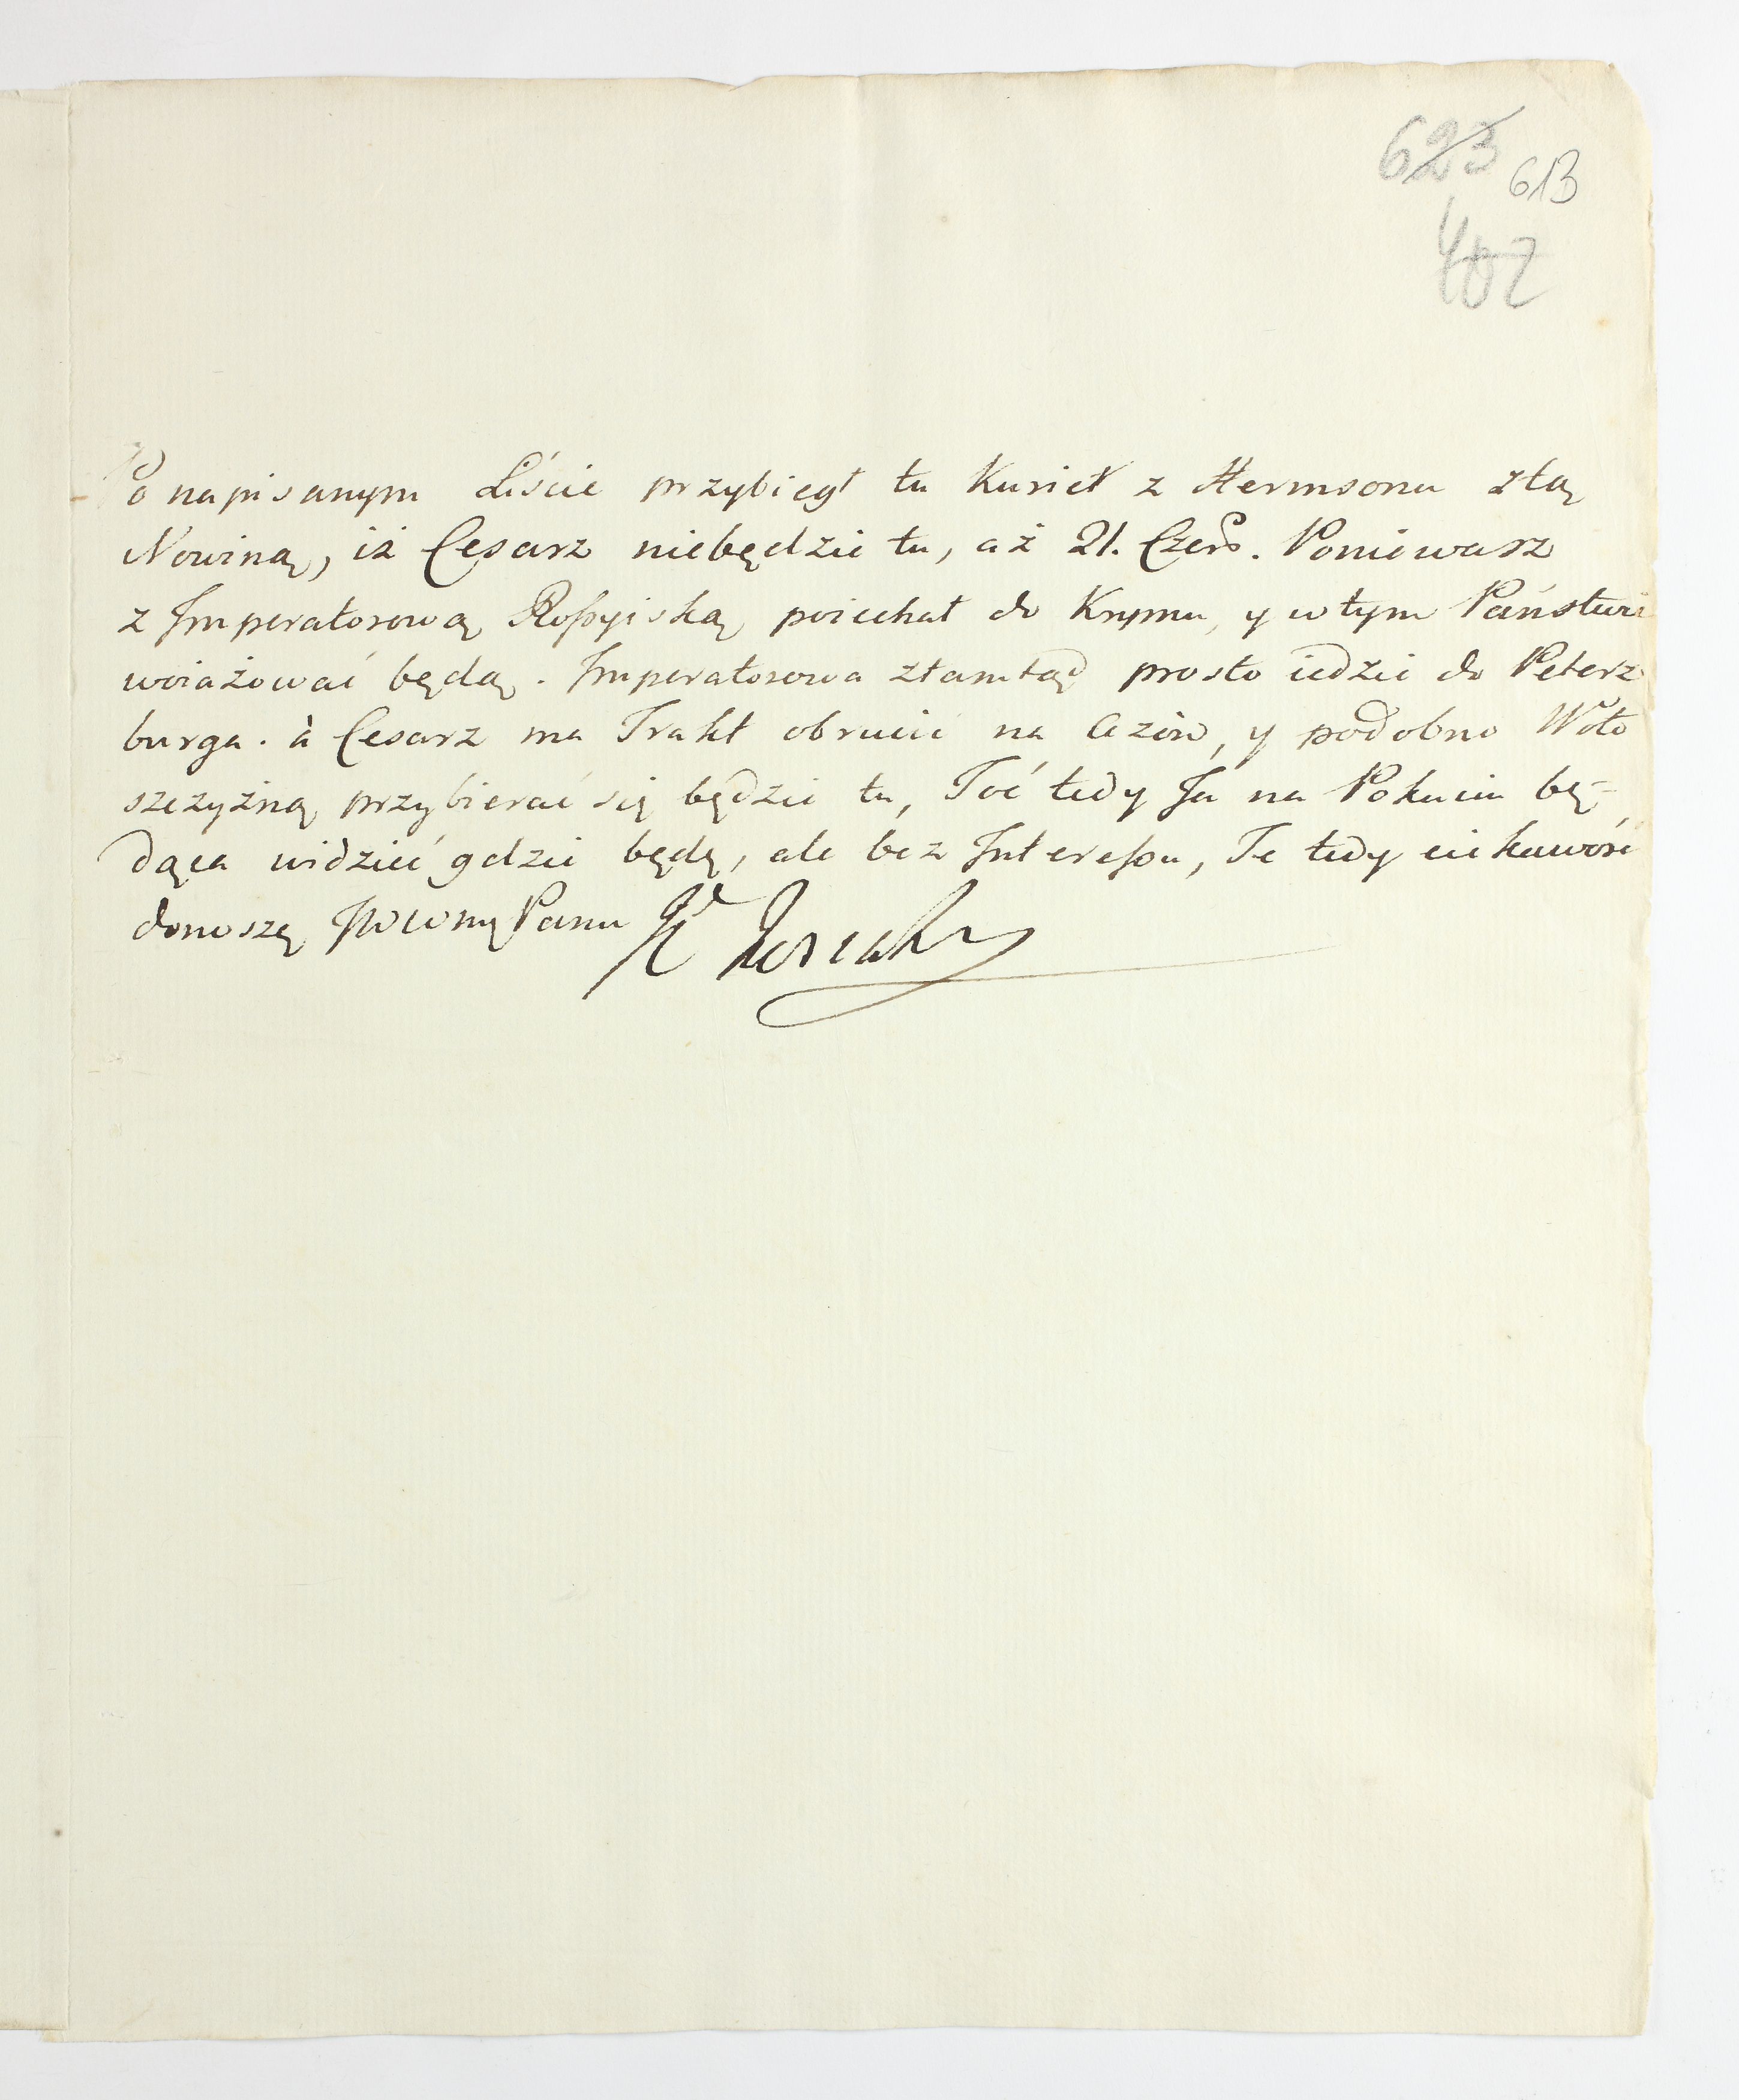 623 613
402
Po napisanym Liście przybiegł tu Kurieł z Hermsonu złą
Nowiną, iż Cesarz niebędzie tu, aż 21. Czerw. Poniewasz
z Imperatorową Rossyiską poiechał do Krymu, y w tym Państwie
woiażować będą. Imperatorowa ztamtąd prosto iedzie do Peterz
burga. à Cesarz ma Trakt obrucić na Azów, y podobno Woło
szczyźną przybierać się będzie tu, Toć tedy Ja na Pokuciu bę-
dąca widzieć gdzie będę, ale bez Interessu, Te tedy ciekawość
donoszę Panu